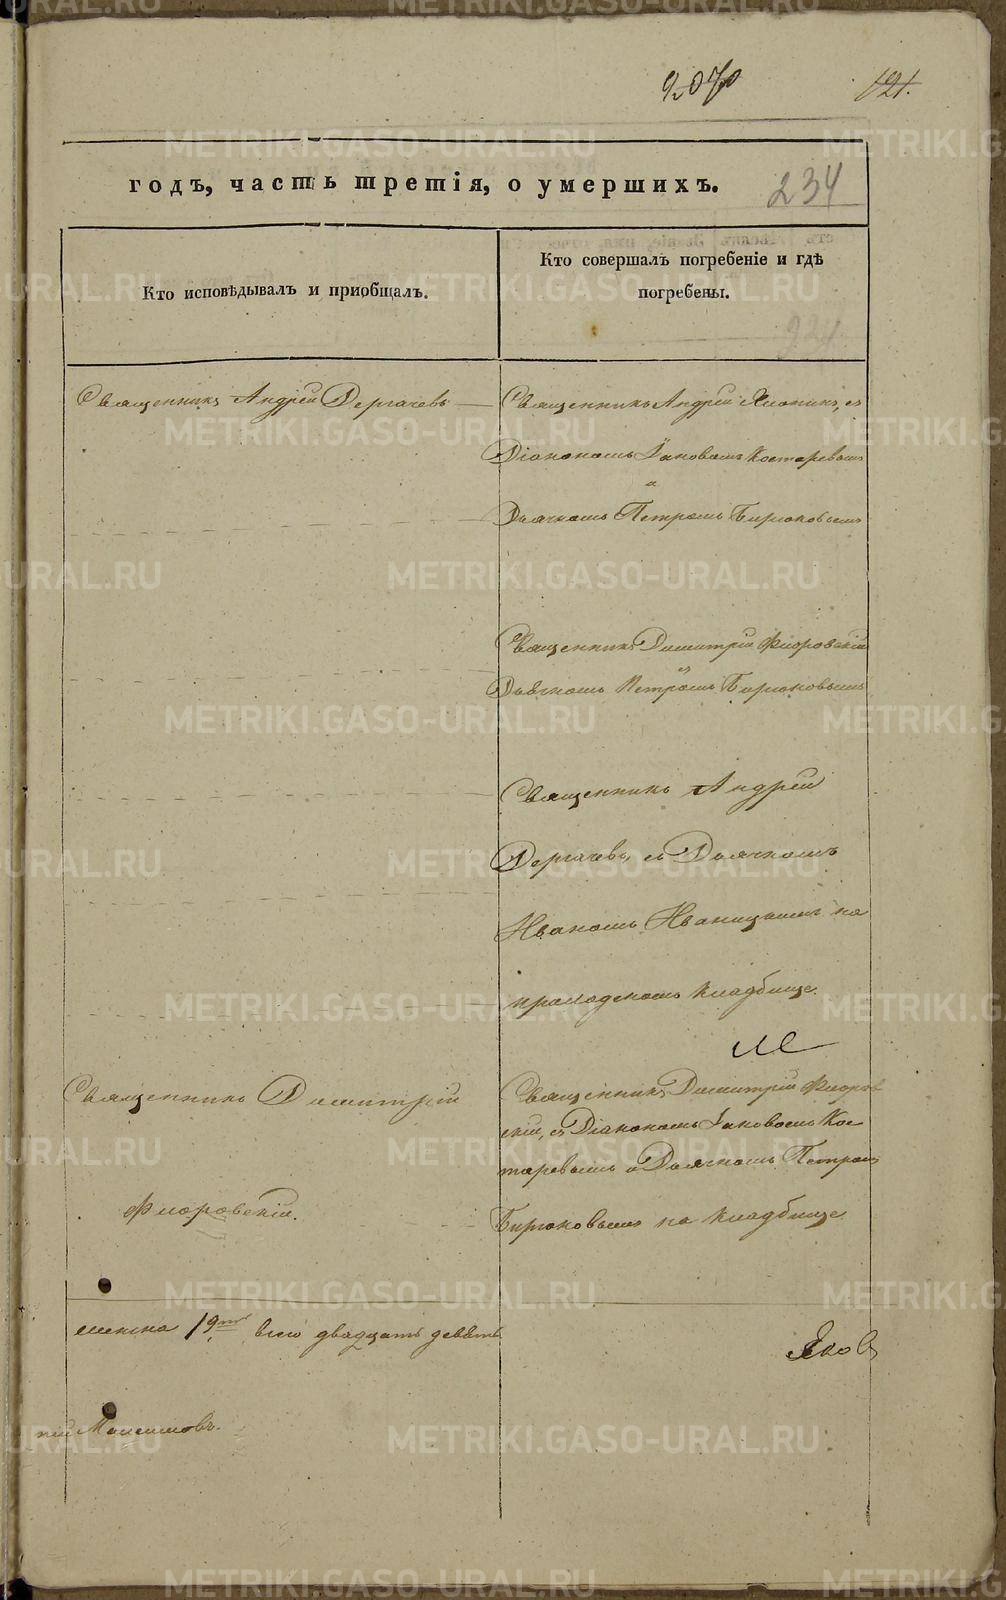 2070
121.
годъ, часть третія, о умершихъ.
234
Кто исповѣдывалъ и пріобщалъ.
Кто совершалъ погребеніе и гдѣ
погребены.
Священникъ Андрей Дергачевъ
Священникъ Андрей Хіонинъ, съ
Діакономъ Іаковомъ Костаревымъ
и
Дьячкомъ Петромъ Бирюковымъ
Священникъ Димитрій Флоровскій
съ
Дьячкомъ Петромъ Бирюковымъ
Священникъ Андрей
Дергачевъ, съ Дьячкомъ
Иваномъ Иваницкимъ на
приходскомъ кладбище.
Священникъ Димитрій
Флоровскій.
Священникъ Димитрій Флоров
скій, съ Діакономъ Іаковомъ Кос
таревымъ и Дьячкомъ Петромъ
Бирюковымъ на кладбище
женска 19ть всего двадцать девять
Яков
ній Максимовъ.
METRIKI.GASO-URAL.RU